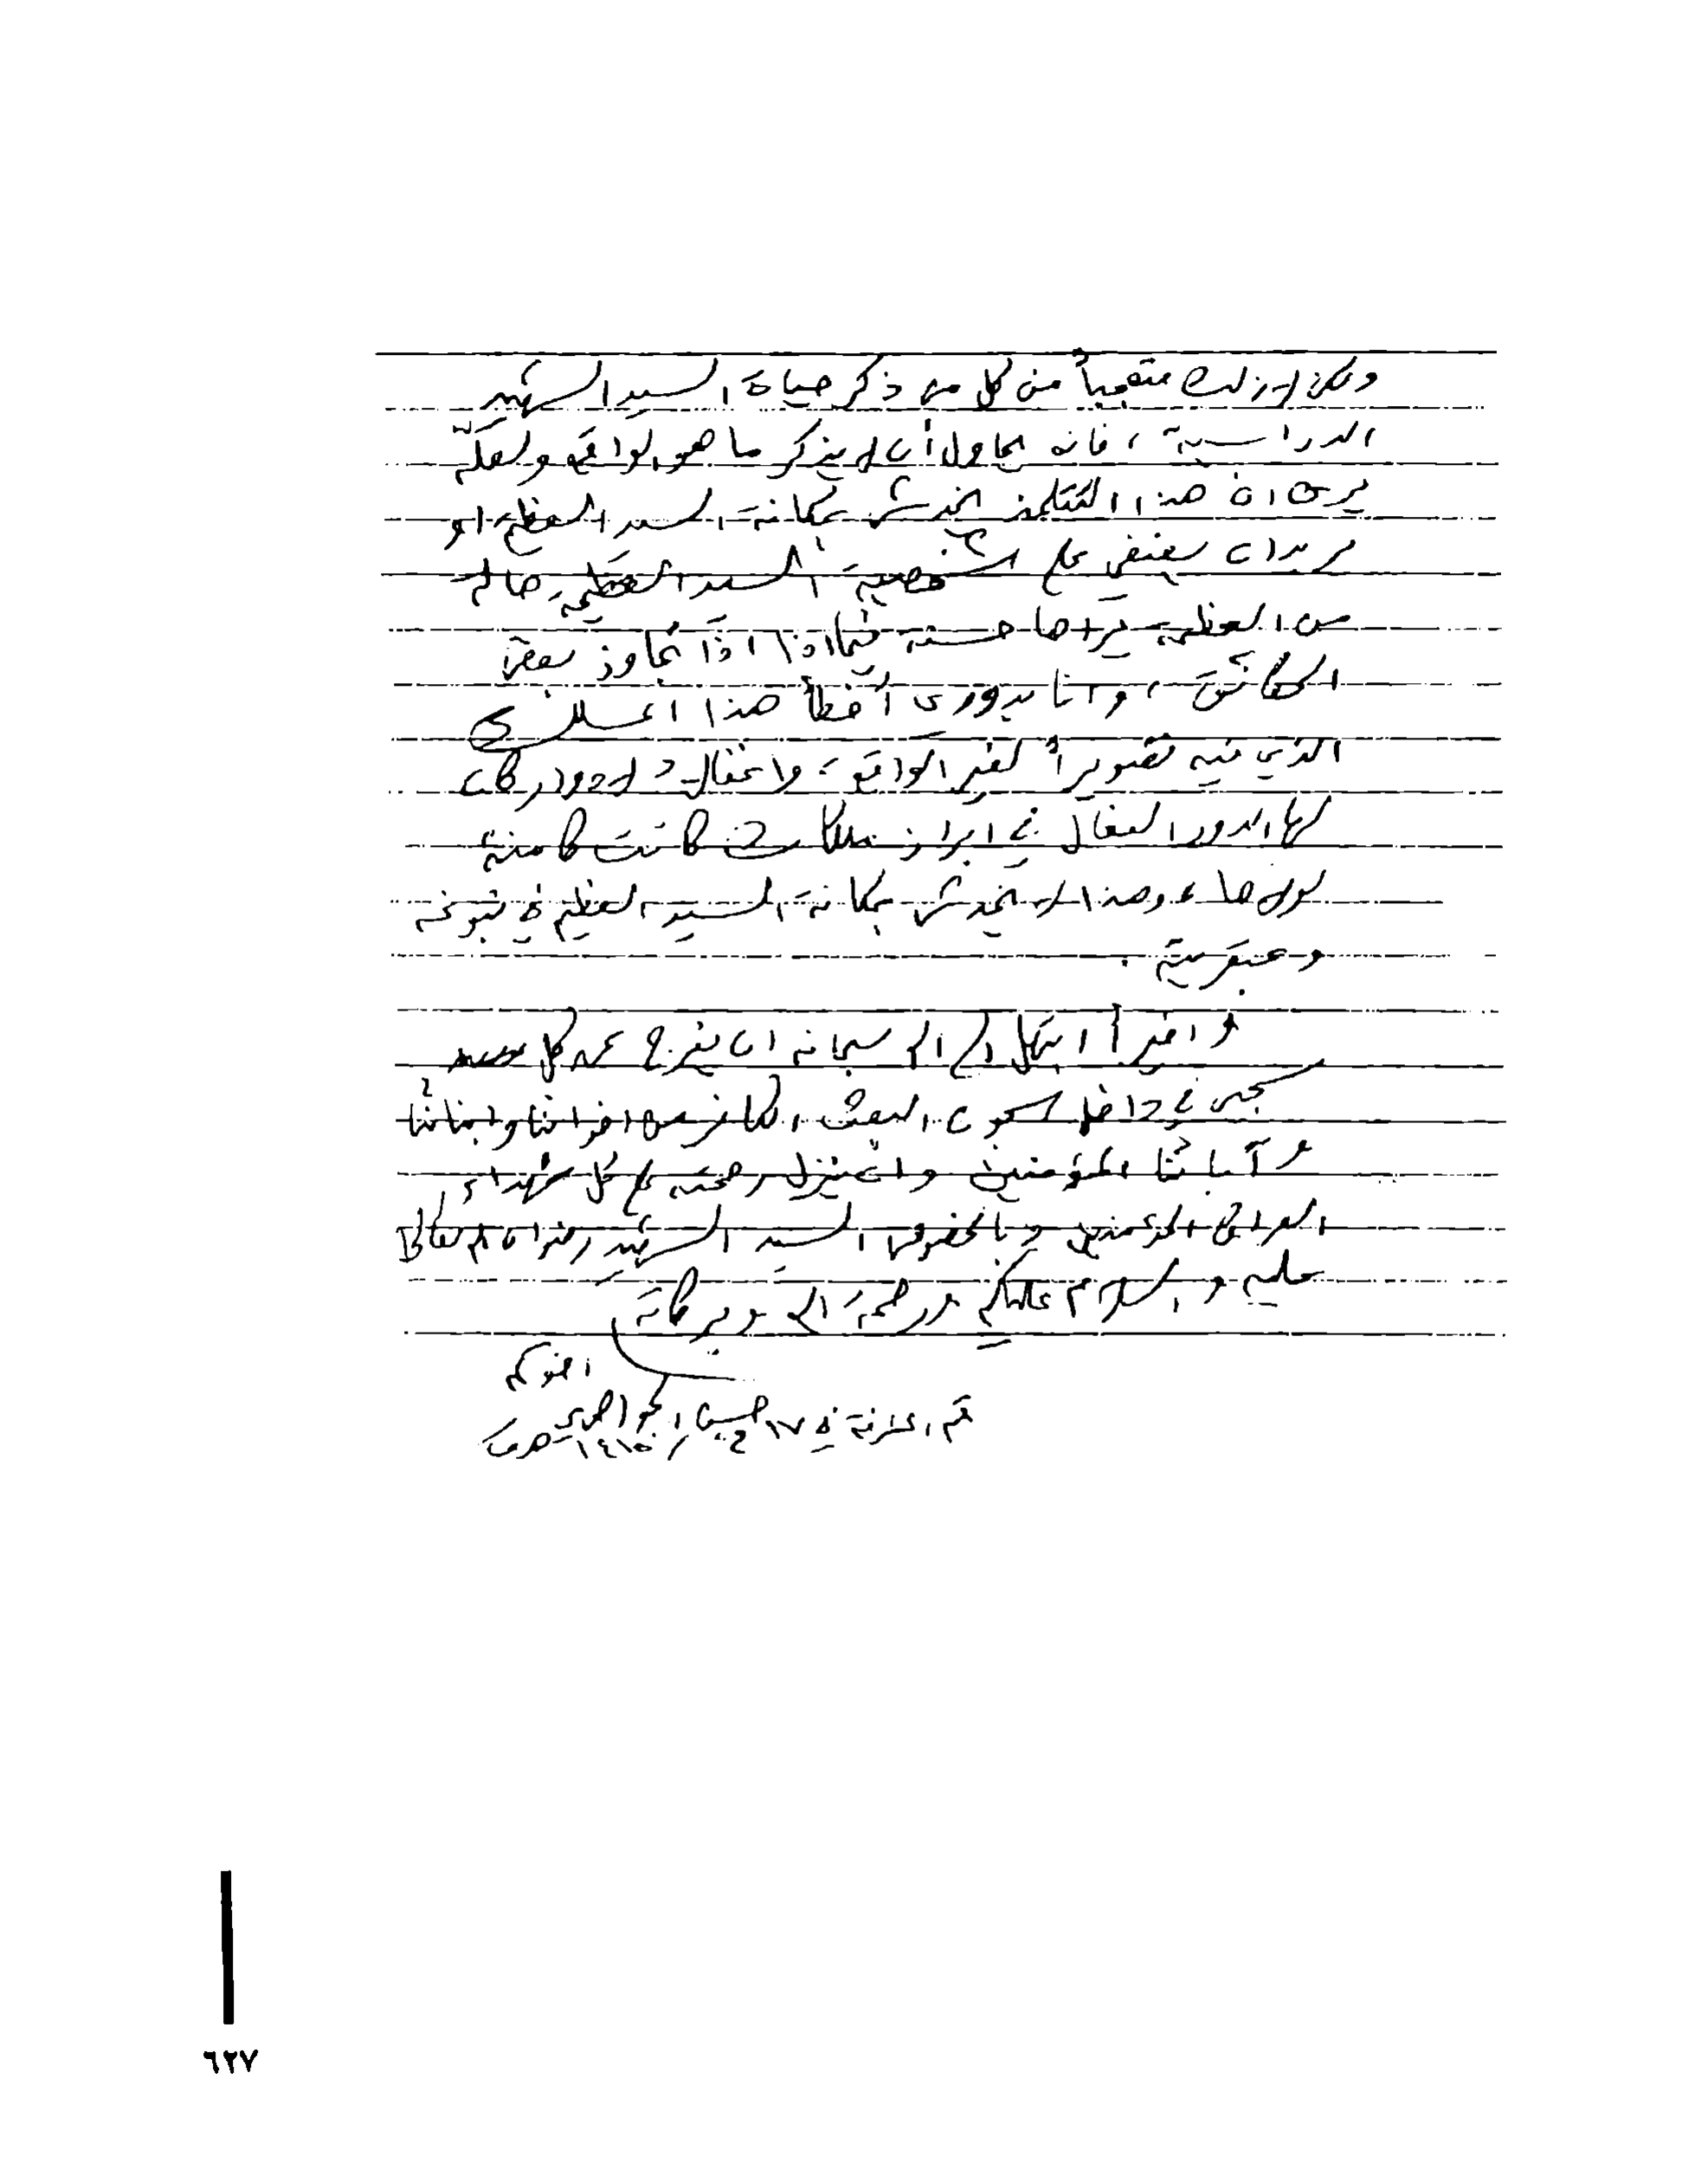 ولكن لا زلت متعجباً من كل من ذكر حياة السيد الشهيد
الدراسية ، فانه يحاول أن لا يذكر ما هو الواقع ولعلّه
يرى ان هذا التتلمذ يخدش بمكانة السيد العظيم او
يريد ان يضفي على شخصية السيد العظيمة حاله
من العظمة يراها حسنة فيما اذا تجاوز بعض
الحقائق ، وانا بدوري أخطأ هذا المسلك
الذي فيه تصويراً لغير الواقع ، واغفال لادوار كان
لها الدور الفعال في ابراز ملكات كانت كامنة
لولاها ، وهذا لا يخدش بمكانة السيد العظيم في نبوغه
وعبقريته .
و اخيراً ابتهل الى الله سبحانه ان يفرج عن كل
سجين في داخل سجون البعث الكافر من اخواننا وابنائنا
و آبائنا المؤمنين وان ينزل رحمته على كل شهداء
العراق المؤمنين وبالخصوص السيد الشهيد رضوان الله تعالى
عليه و السلام عليكم ورحمة الله وبركاته
اخوكم
حسن الجواهري
قم المشرفة في ١٧
١٤١٥ هـ
٦٢٧